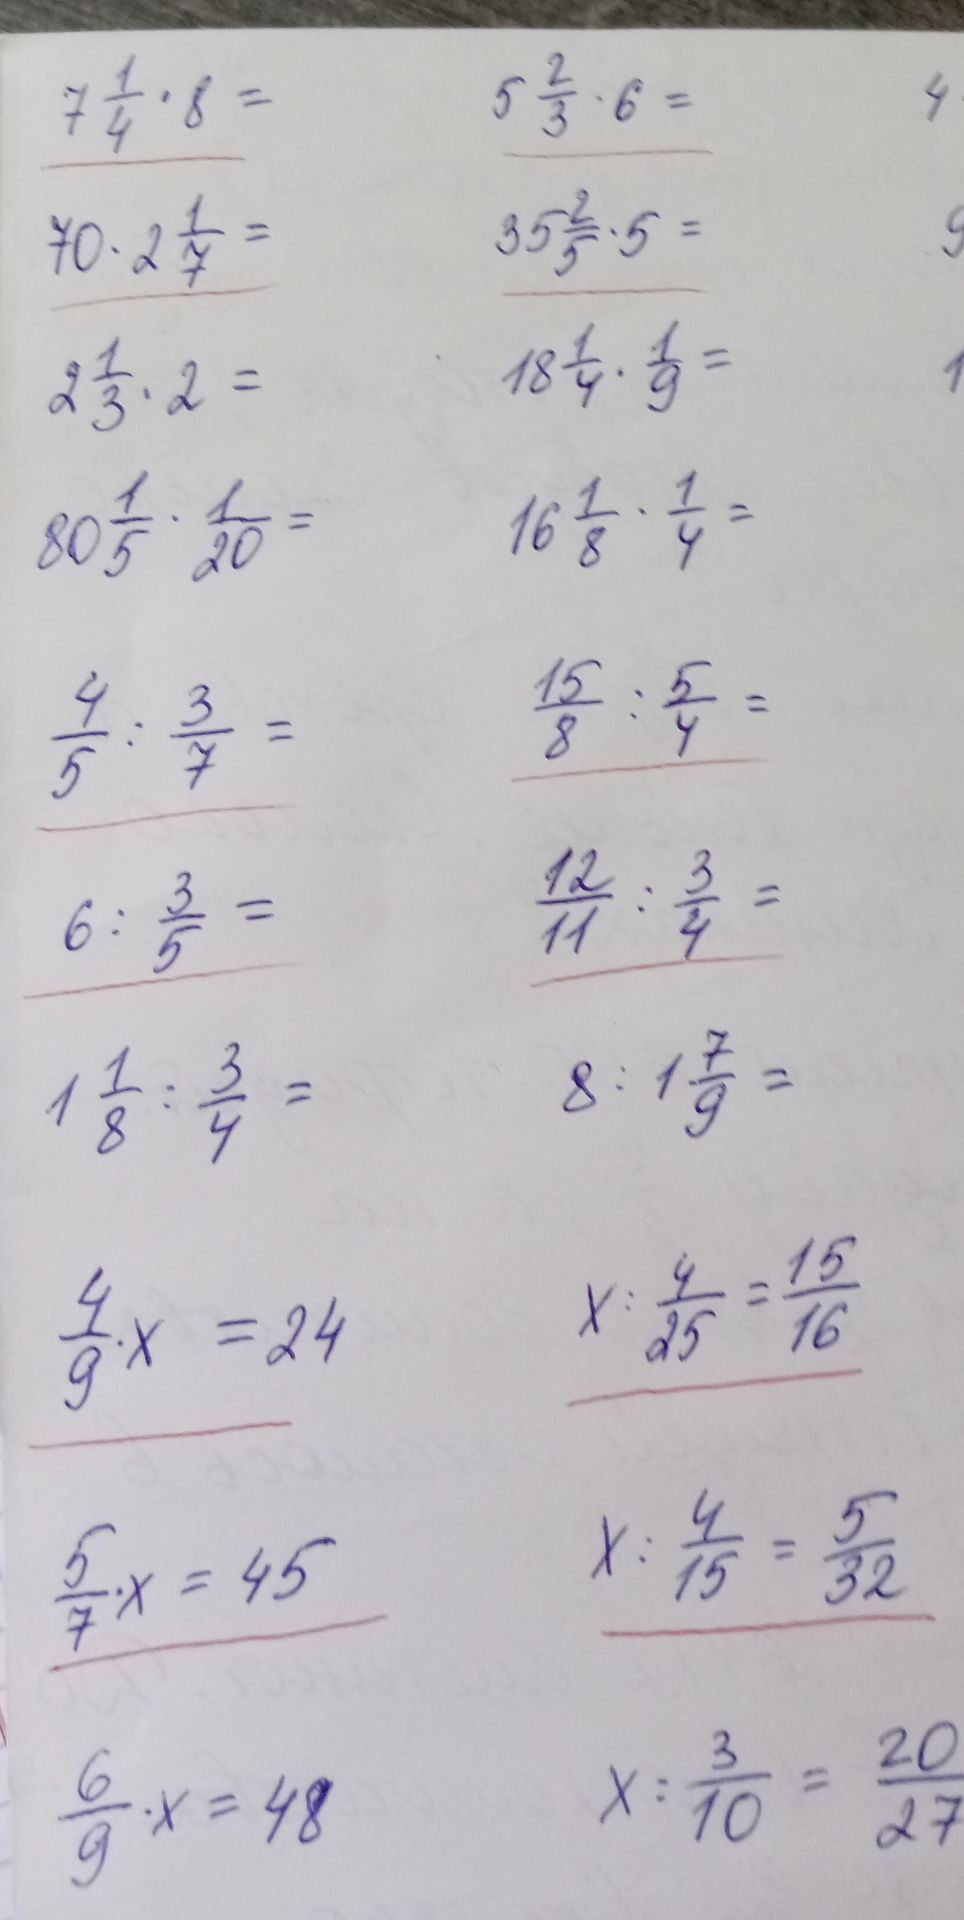 7 1/4 · 8 = 5 2/3 · 6 = 4
70 · 2 1/7 = 35 2/5 · 5 = 9
2 1/3 · 2 = 18 1/4 · 1/9 = 1
80 1/5 · 1/20 = 16 1/8 · 1/4 =
4/5 : 3/7 = 15/8 : 5/4 =
6 : 3/5 = 12/11 : 3/4 =
1 1/8 : 3/4 = 8 : 1 7/9 =
4/9 · x = 24 x : 4/25 = 15/16
5/7 · x = 45 x : 4/15 = 5/32
6/9 · x = 48 x : 3/10 = 20/27